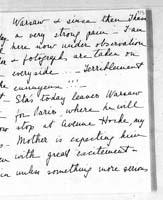 Warsaw & since then I have
a very strong pain. I am
here now under observation
& fotografs are taken on
every side... Terriblement
ennuyeux...
Stas today leaves Warsaw
for Paris where he will
stop at Avenue Hoche, my
Mother is expecting him
with great excitement -
unless something more